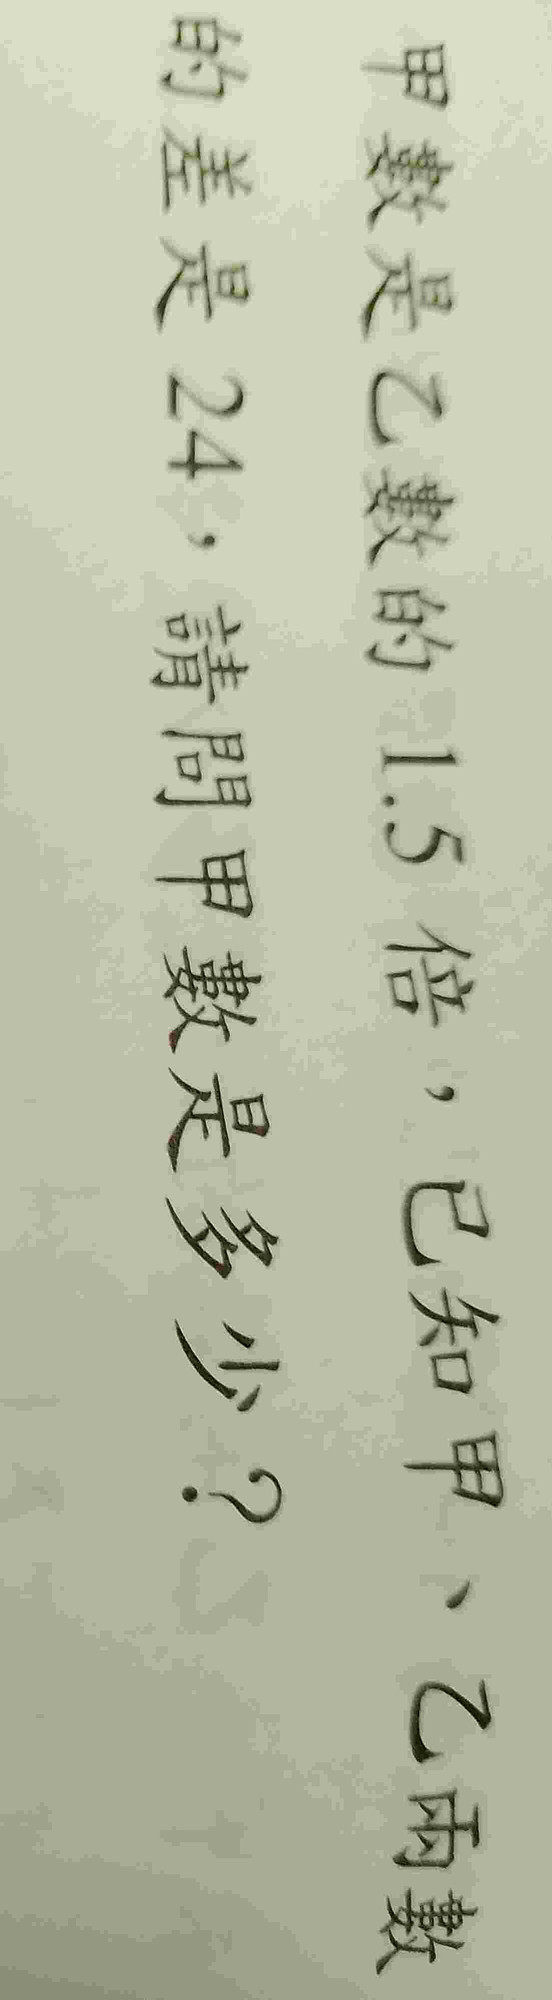 甲數是乙數的 1.5 倍，已知甲、乙兩數
的差是 24，請問甲數是多少？